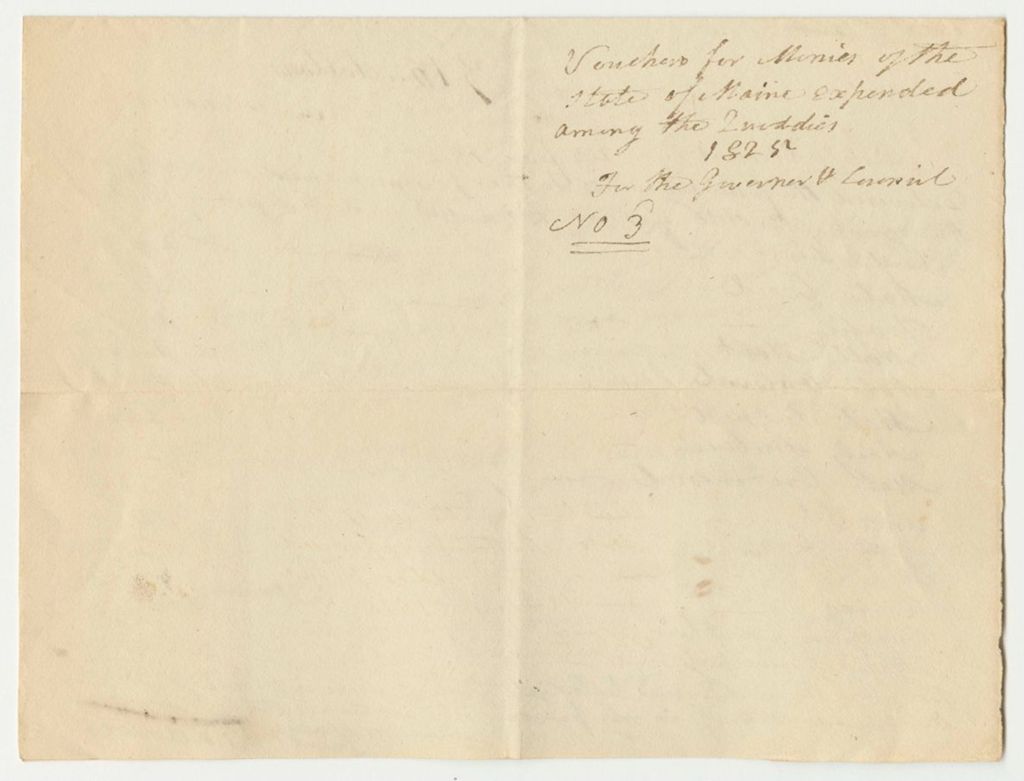 Vouchers for Monies of the
State of Maine expended
among the Quoddies
1825
For the Governor & Council
No 3